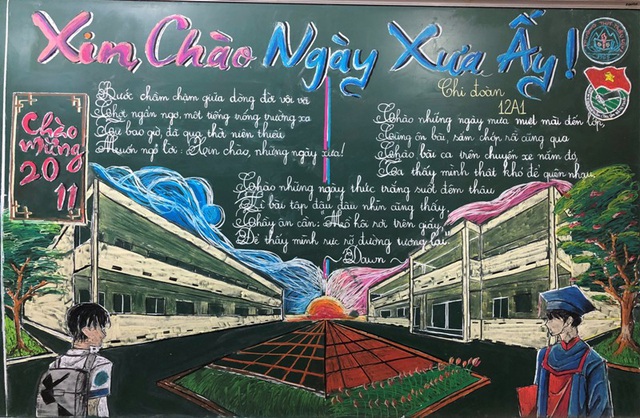 Xin Chào Ngày Xưa Ấy!
Chi đoàn
12A1
Chào
mừng
20
11
Bước chầm chậm giữa dòng đời vội vã
Chợt ngẩn ngơ, một tiếng trống trường xa
Từ bao giờ, đã qua thời niên thiếu
Muốn ngỏ lời: Xin chào, những ngày xưa!
Chào những ngày mưa miệt mài đến lớp,
Cùng ôn bài, sấm chớp rồi cũng qua
Chào bài ca trên chuyến xe năm đó,
Ta thấy mình thật khó để quên nhau.
Chào những ngày thức trắng suốt đêm thâu
Vì bài tập đâu đâu nhìn cũng thấy
Thầy ân cần: Mồ hôi rơi trên giấy,
Để thấy mình rực rỡ đường tương lai.
~ Dawn ~